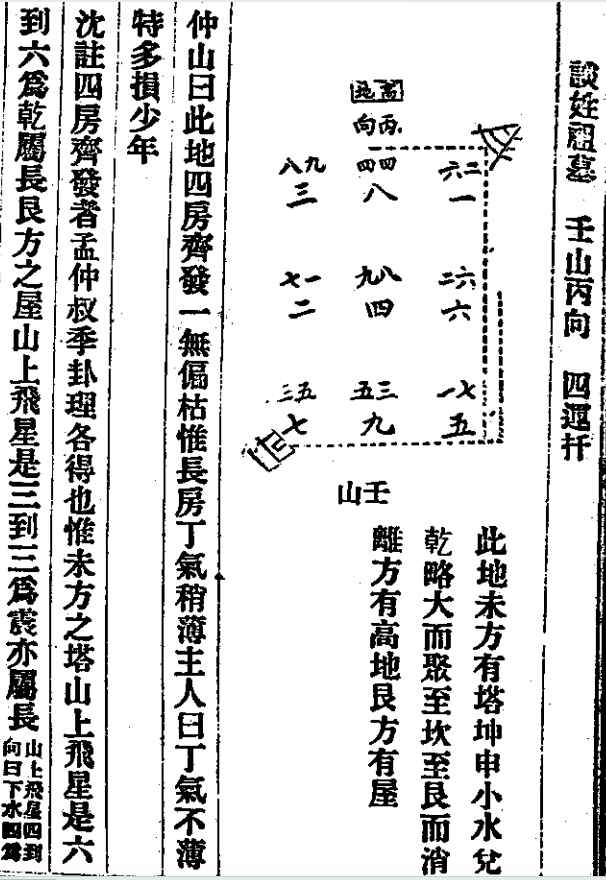 談姓祖墓　壬山丙向　四運扦
高地
丙向
八九　四四　六二
三　八　一
七一　九八　二六
二　四　六
三五　五三　一七
七　九　五
壬山
此地未方有塔坤申小水兌
乾略大而聚至坎至艮而消
離方有高地艮方有屋
仲山曰此地四房齊發一無偏枯惟長房丁氣稍薄主人曰丁氣不薄
特多損少年
沈註四房齊發者孟仲叔季卦理各得也惟未方之塔山上飛星是六
到六爲乾屬長艮方之屋山上飛星是三到三爲震亦屬長
山上飛星四到
向曰下水四爲